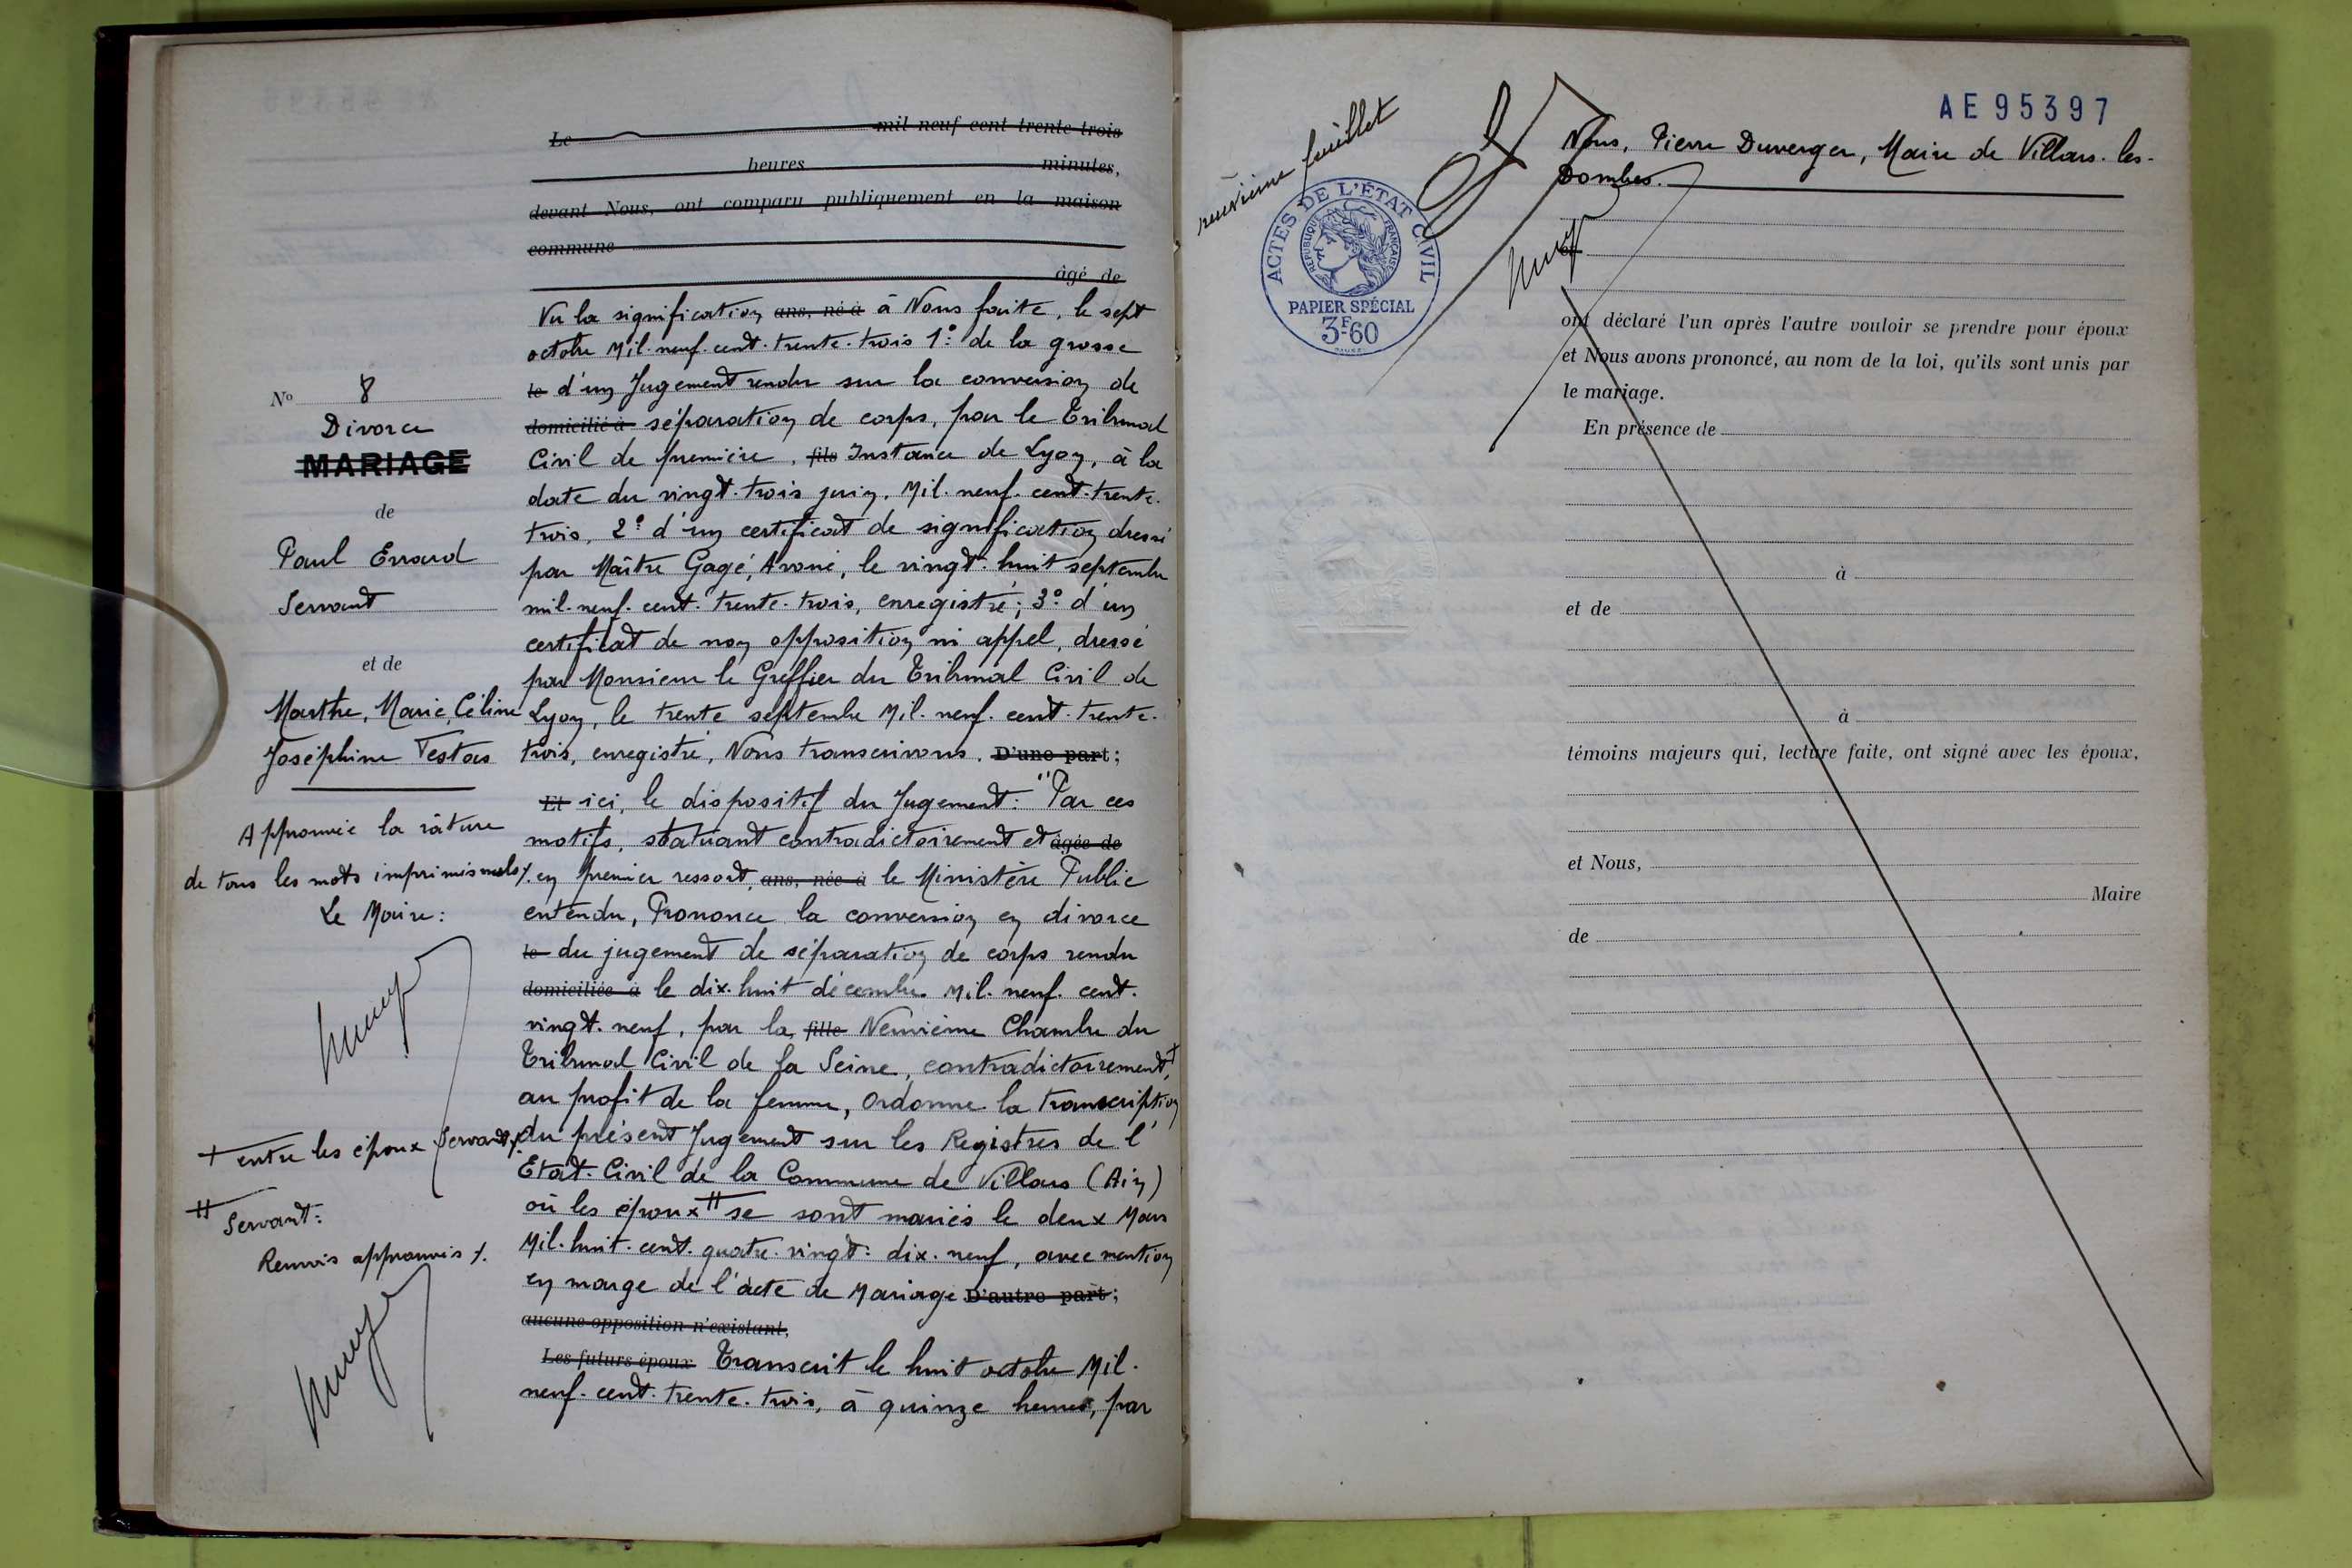 Le mil neuf cent trente trois
heures minutes,
devant Nous, ont comparu publiquement en la maison
commune
âgé de
Vu la signification ans, né à à Nous faite, le sept
octobre Mil. neuf. cent. trente. trois 1º: de la grosse
le d'un Jugement rendu sur la conversion de
domicilié à séparation de corps, par le Tribunal
Civil de première, fils Instance de Lyon, à la
date du vingt. trois juin, Mil. neuf. cent. trente.
trois, 2º: d'un certificat de signification dressé
par Maître Gagé, Avoué, le vingt. huit septembre
mil. neuf. cent. trente. trois, enregistré; 3º: d'un
certificat de non opposition ni appel, dressé
par Monsieur le Greffier du Tribunal Civil de
Lyon, le trente septembre Mil. neuf. cent. trente.
trois, enregistré, Nous transcrivons. D'une part;
Et ici, le dispositif du Jugement: "Par ces
motifs, statuant contradictoirement et âgée de
en premier ressort, ans, née à le Ministère Public
entendu, Prononce la conversion en divorce
le du jugement de séparation de corps rendu
domiciliée à le dix. huit décembre Mil. neuf. cent.
vingt. neuf, par la, fille Neuvième Chambre du
Tribunal Civil de la Seine, contradictoirement, +
au profit de la femme, Ordonne la transcription
du présent Jugement sur les Registres de l'
Etat. Civil de la Commune de Villars (Ain)
où les époux ++ se sont mariés le deux Mars
Mil. huit. cent. quatre. vingt. dix. neuf, avec mention
en marge de l'acte de Mariage D'autre part;
aucune opposition n'existant,
Les futurs époux Transcrit le huit octobre Mil.
neuf. cent. trente. trois, à quinze heures, par
No 8
Divorce
MARIAGE
de
Paul Errard
Servant
et de
Marthe, Marie, Céline
Joséphine Testas
Approuvée la râture
de tous les mots imprimés nuls /.
Le Maire:
+ entre les époux Servant /.
++ Servant:
Renvois approuvés /.
AE 95397
neuvième feuillet
ACTES DE L'ÉTAT CIVIL
RÉPUBLIQUE FRANÇAISE
PAPIER SPÉCIAL
3F60
Nous, Pierre Duverger, Maire de Villars. les.
Dombes.
et
ont déclaré l'un après l'autre vouloir se prendre pour époux
et Nous avons prononcé, au nom de la loi, qu'ils sont unis par
le mariage.
En présence de
à
et de
à
témoins majeurs qui, lecture faite, ont signé avec les époux,
et Nous,
Maire
de